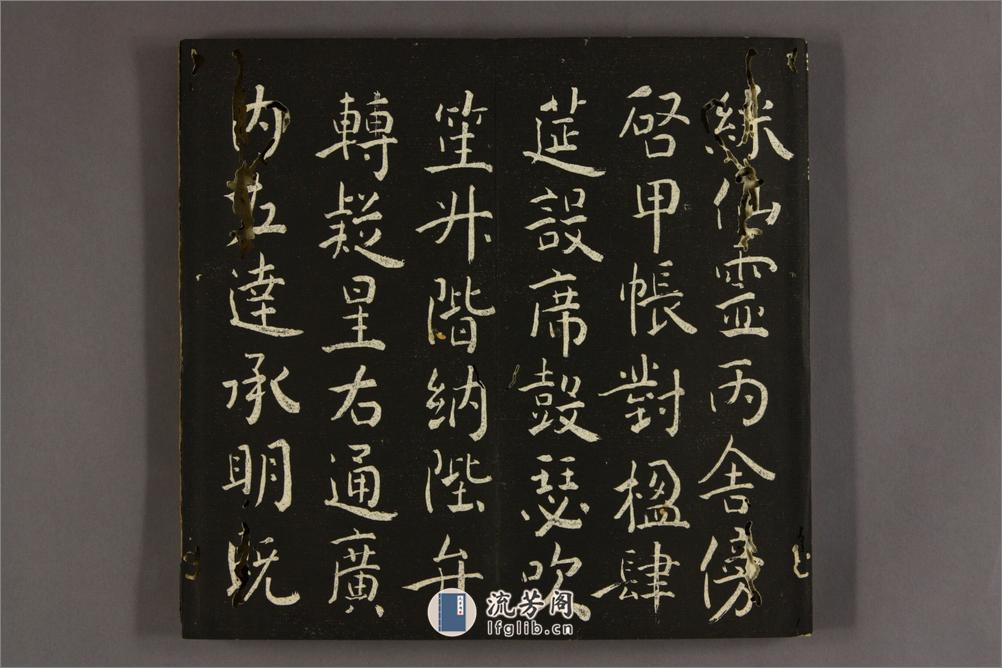 綵仙靈丙舍傍
啓甲帳對楹肆
莚設席鼓瑟吹
笙升階納陛弁
轉疑星右通廣
內左達承明既
流芳阁
lfglib.cn